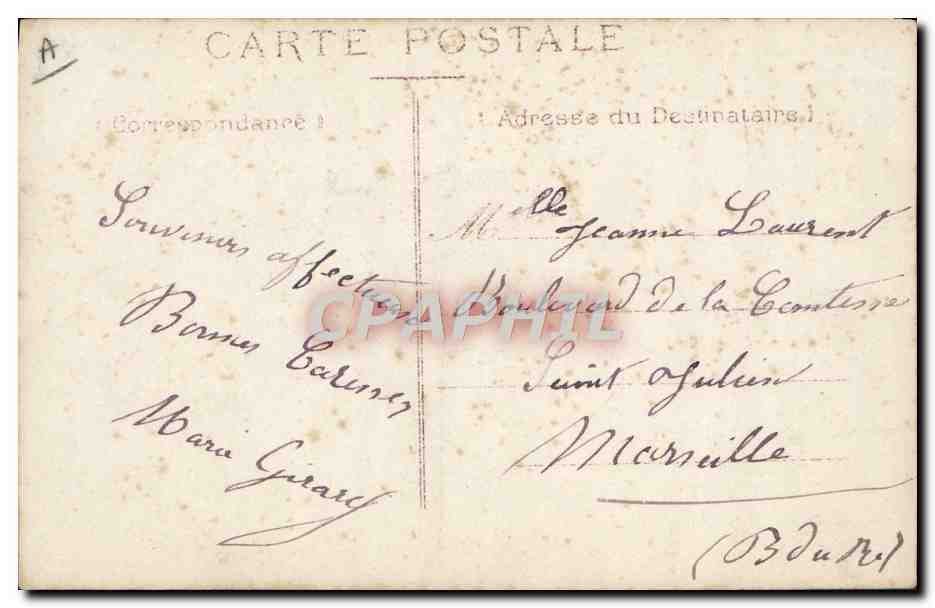 A
CARTE POSTALE
Correspondance
Adresse du Destinataire
Souvenirs affectueux
Bonnes Caresses
Marie Girard
Melle Jeanne Laurent
Boulevard de la Comtesse
Saint Julien
Marseille
(B du R)
CPAPHIL